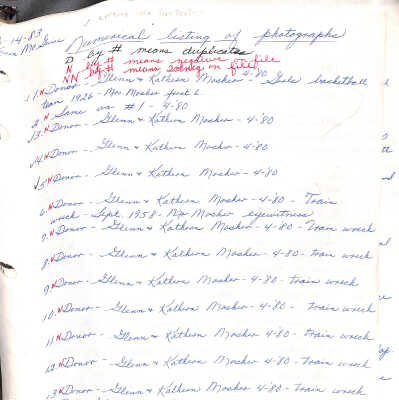 -14-83
Numerical listing of photographs
D by # means duplicates
N by # means negative on file
NN by # means 2nd neg on file
1. N Donor - Glenn & Kathern Mosher - 4-80 - Girls basketball
team 1926 - Mrs Mosher front L
2. N Same as #1 - 4-80
3. N Donor - Glenn & Kathern Mosher - 4-80
4. N Donor - Glenn & Kathern Mosher - 4-80
5. N Donor - Glenn & Kathern Mosher - 4-80
6. N Donor - Glenn & Kathern Mosher - 4-80 - Train
wreck - Sept. 1958 - Mr Mosher eyewitness
7. N Donor - Glenn & Kathern Mosher - 4-80 - Train wreck
8. N Donor - Glenn & Kathern Mosher - 4-80 - train wreck
9. N Donor - Glenn & Kathern Mosher - 4-80 - train wreck
10. N Donor - Glenn & Kathern Mosher - 4-80 - train wreck
11. N Donor - Glenn & Kathern Mosher - 4-80 - train wreck
12. N Donor - Glenn & Kathern Mosher - 4-80 - train wreck
13. N Donor - Glenn & Kathern Mosher - 4-80 - train wreck